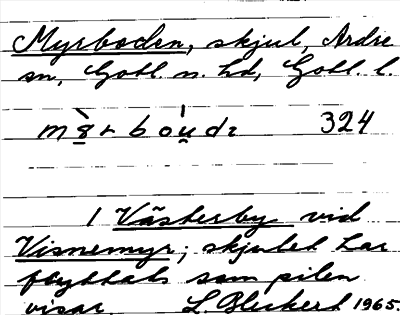 Myrboden, skjul, Ardre
sn, Gotl. n. hd, Gotl. l.
324
1 Västerby vid
Visnemyr; skjulet har
flyttats som pilen
visar. L. Bleckert 1965.